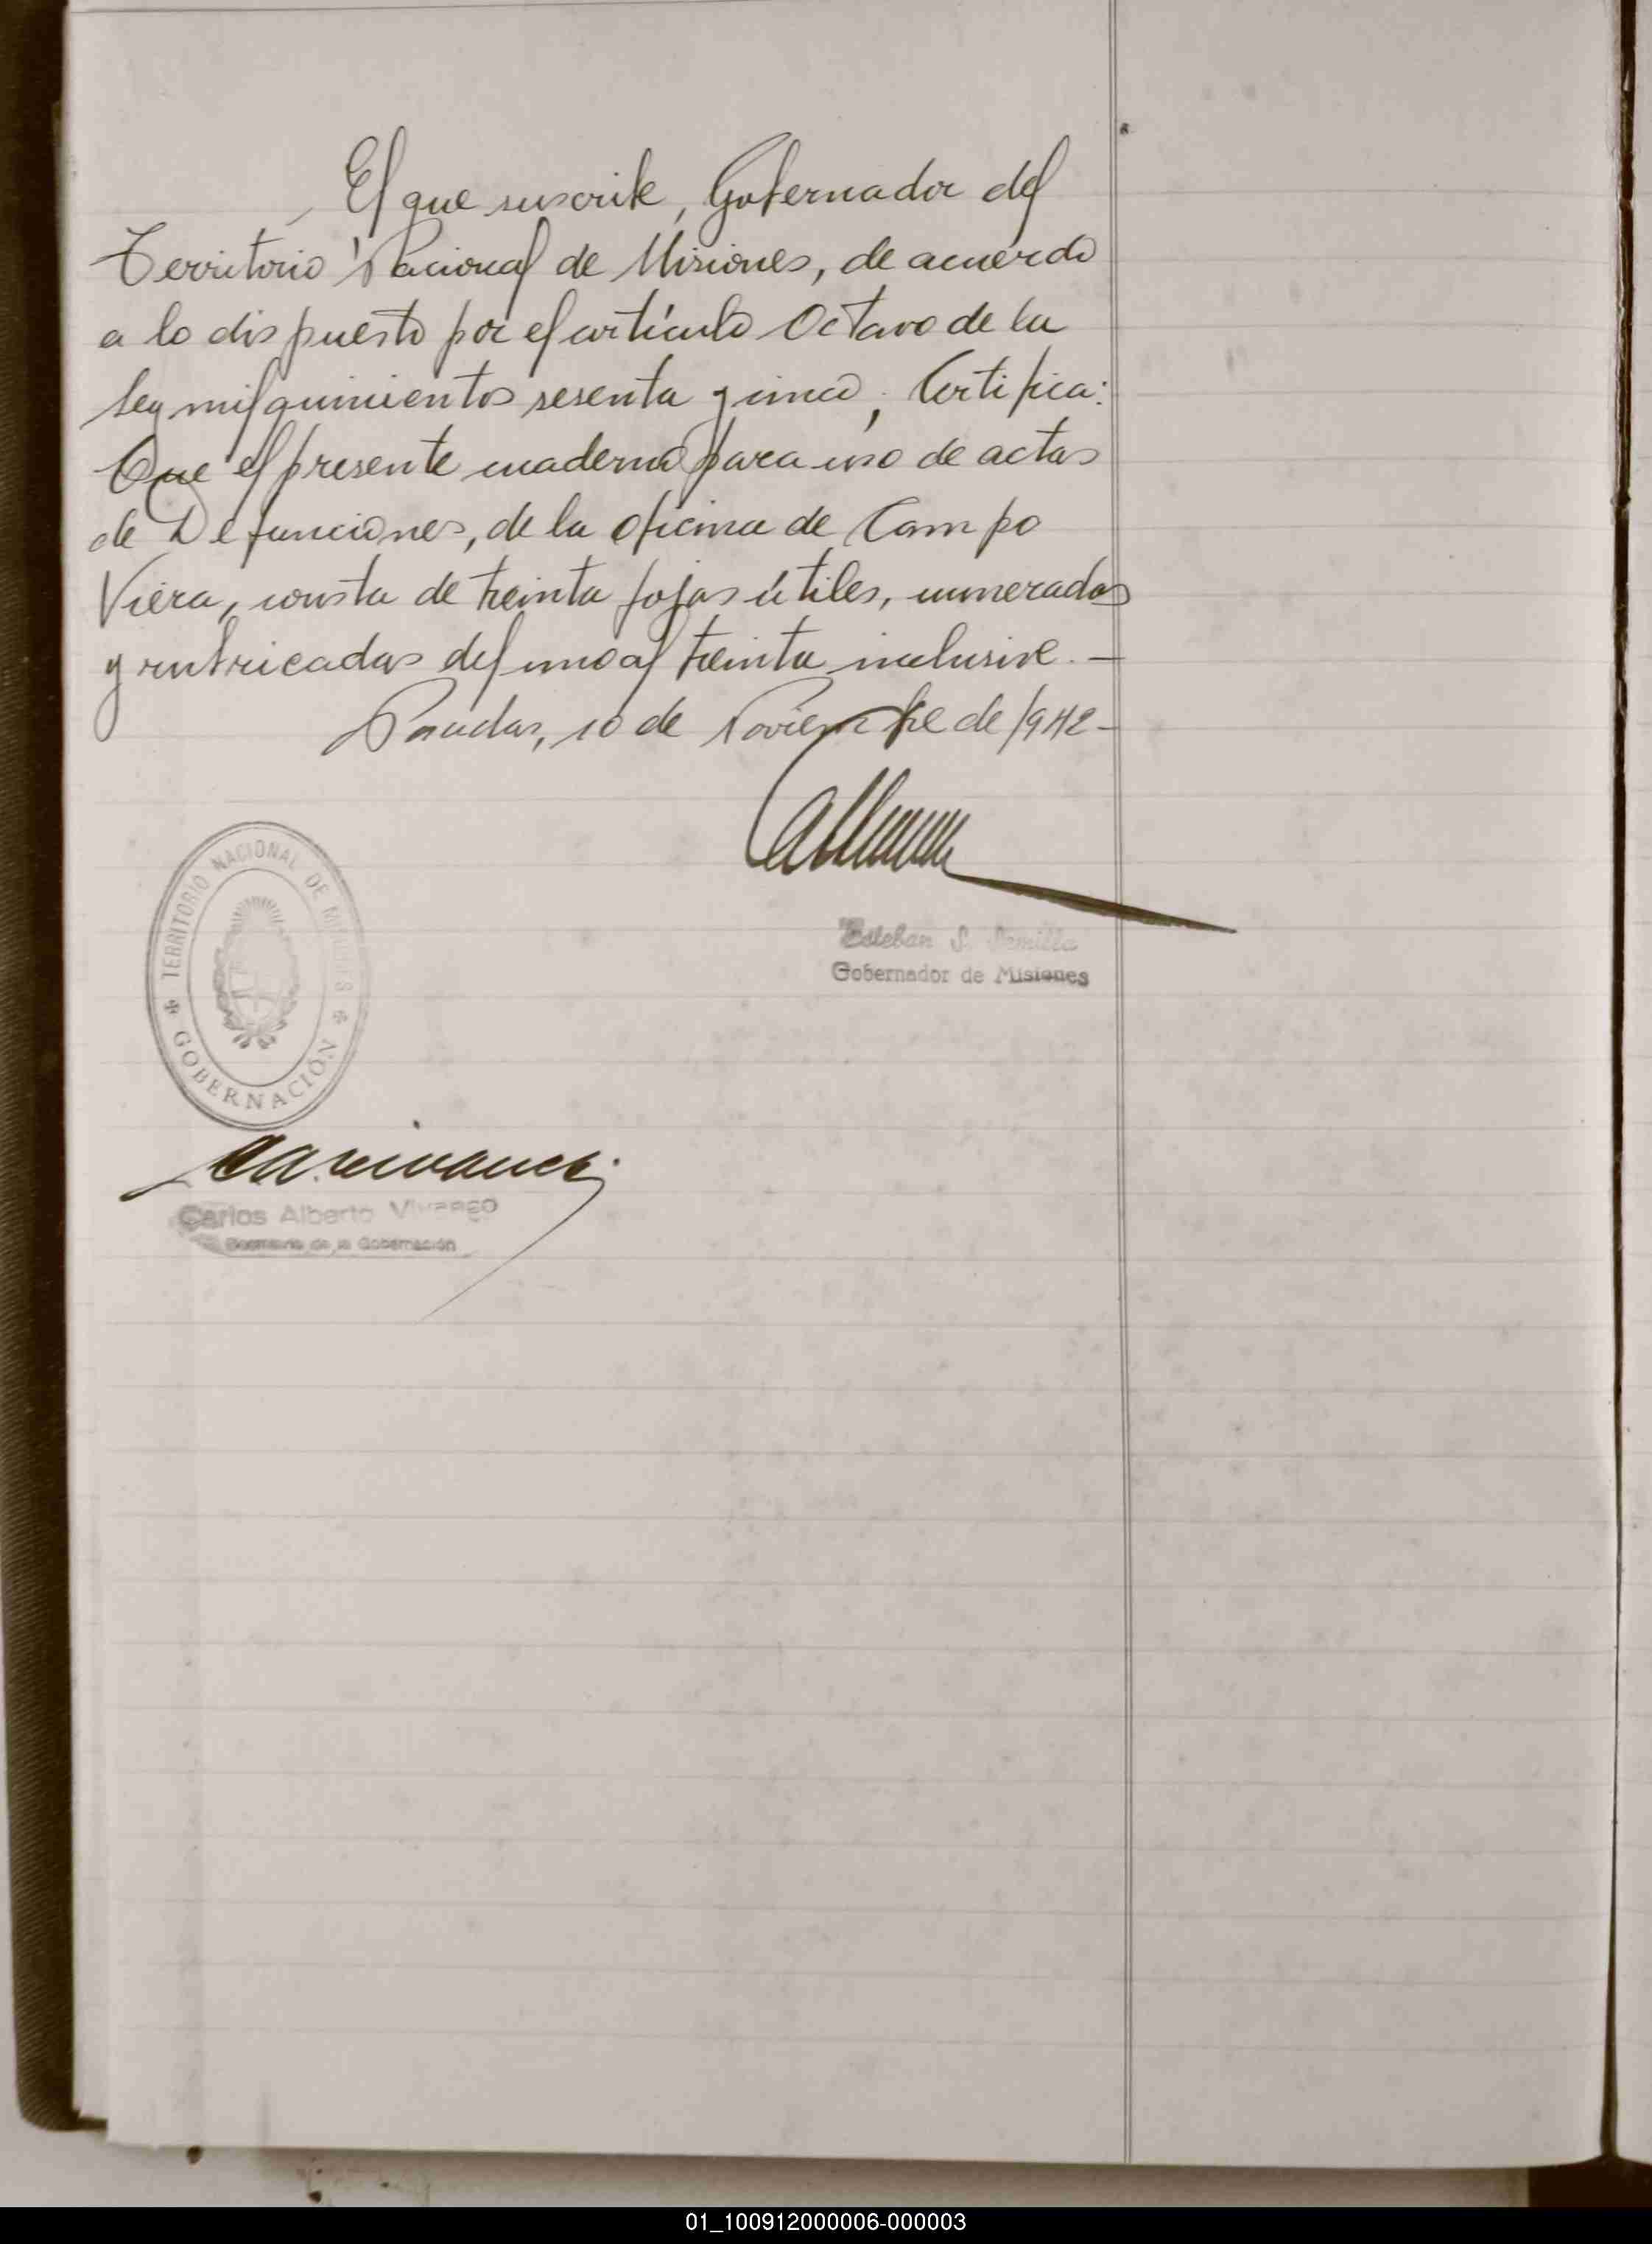 El que suscribe, Gobernador del
Territorio Nacional de Misiones, de acuerdo
a lo dispuesto por el artículo Octavo de la
ley mil quinientos sesenta y cinco, Certifica:
Que el presente cuaderno para uso de actas
de Defunciones, de la oficina de Campo
Viera, consta de treinta fojas útiles, numeradas
y rubricadas del uno al treinta inclusive.—
Posadas, 10 de Noviembre de 1942-
TERRITORIO NACIONAL DE MISIONES
GOBERNACIÓN
Esteban S.
Gobernador de Misiones
Carlos Alberto Vivanco
Secretario de la Gobernación
01_100912000006-000003